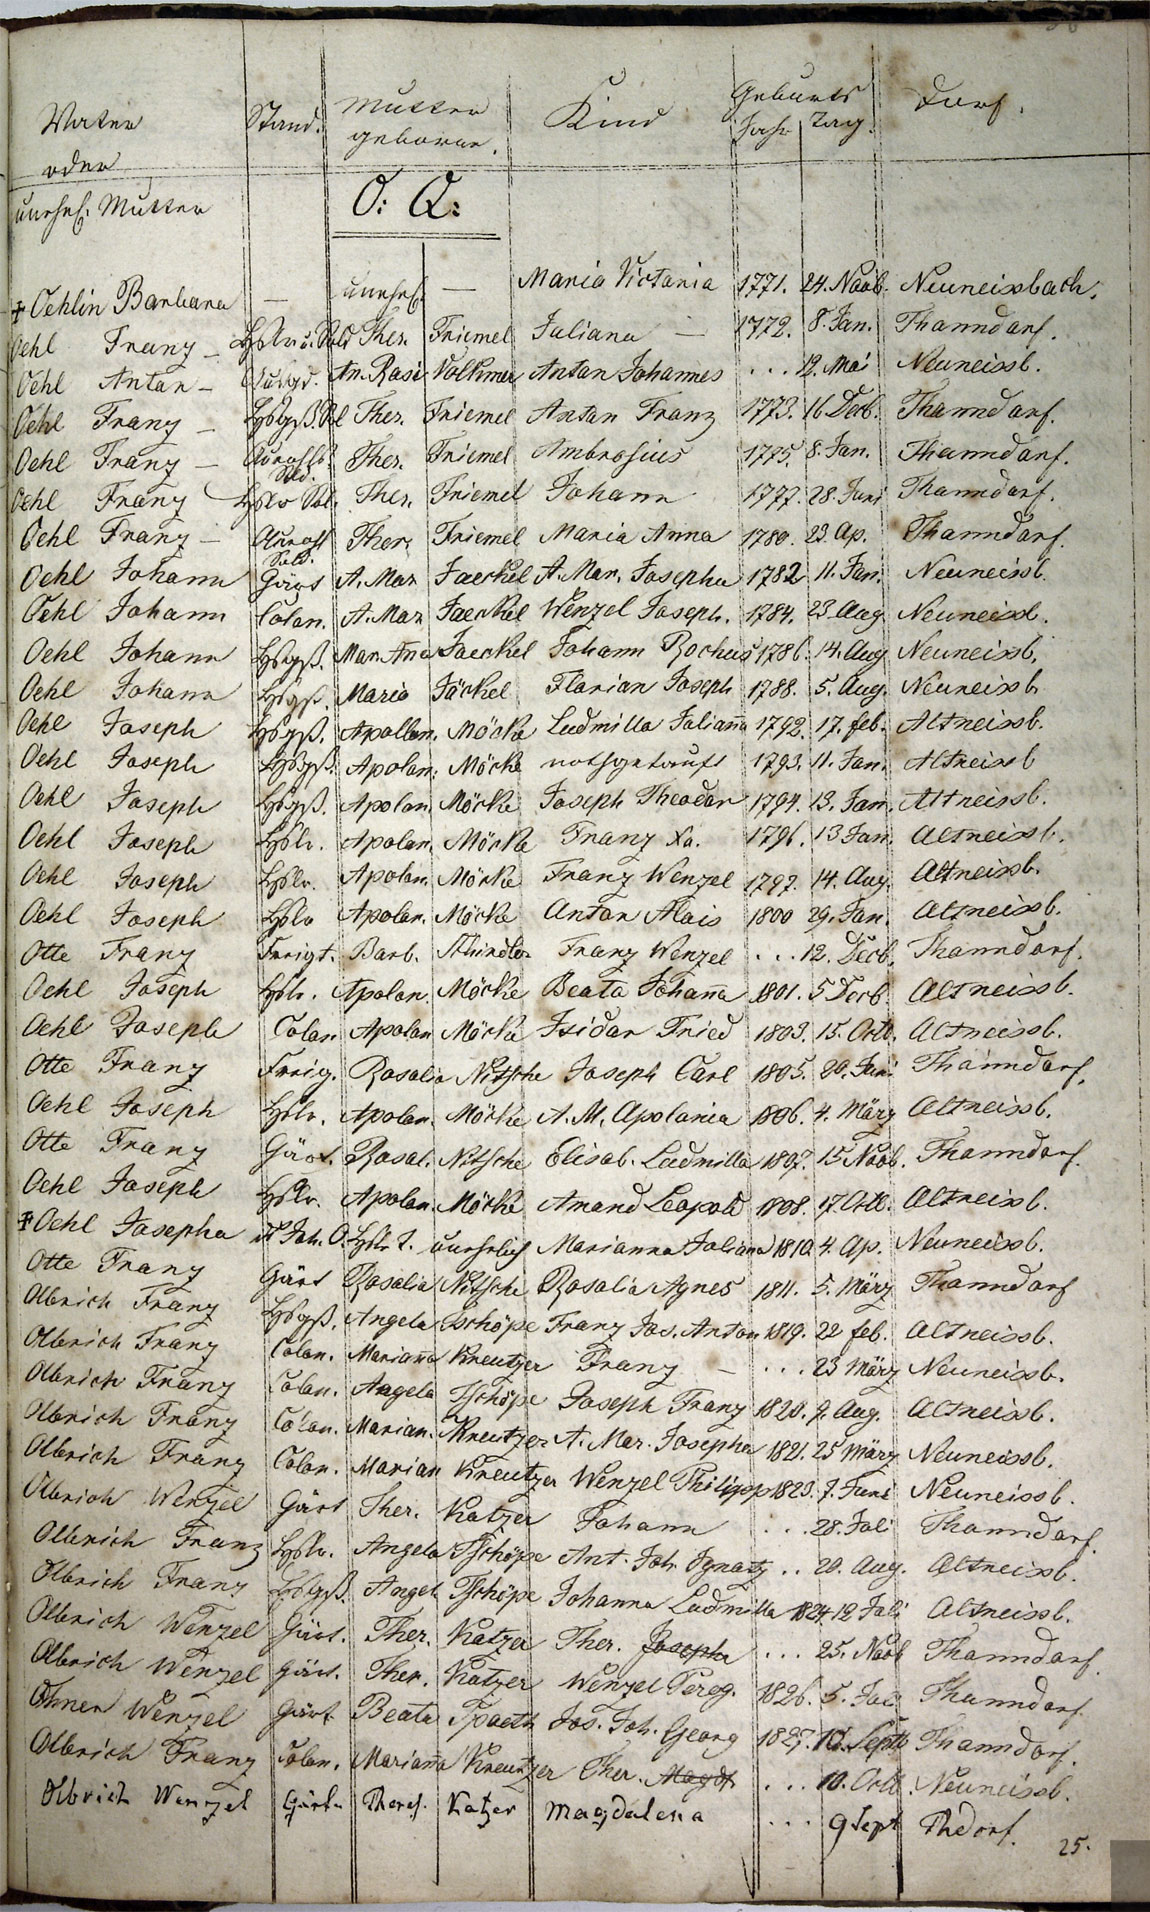 Vater Stand. Mutter Kind Geburts Dorf.
oder geborne. Jahr Tag.
unehel. Mutter O: Q:
‡ Oehlin Barbara — unehel. — Maria Victoria 1771. 24. Novb. Neuneissbach.
Oehl Franz — Ther. Friemel Juliana — 1772. 8. Jan. Thanndorf.
Oehl Anton — An. Rosi Volkmer Anton Johannes ... 12. Mai Neuneissb.
Oehl Franz — Ther. Friemel Anton Franz 1773. 16 Decb. Thanndorf.
Oehl Franz — Ther. Friemel Ambrosius 1775. 8. Jan. Thanndorf.
Oehl Franz Ther. Friemel Johann 1777. 28. Juni Thanndorf.
Oehl Franz — Ther. Friemel Maria Anna 1780. 23. Ap. Thanndorf.
Oehl Johann Gärt A. Mar Jaeckel A. Mar. Josepha 1782 11. Jan. Neuneissb.
Oehl Johann Colon. A. Mar Jaeckel Wenzel Joseph. 1784. 23. Aug Neuneissb.
Oehl Johann Hsbgß. Mar. Aña Jaeckel Johann Rochus 1786. 14. Aug Neuneissb.
Oehl Johann Hsbgß. Maria Jäckel Florian Joseph 1788. 5. Aug. Neuneissb
Oehl Joseph Hsbgß. Apollon. Möcke Ludmilla Juliaña 1792. 17. feb. Altneissb.
Oehl Joseph Hsbgß. Apolon. Möcke nothgetauft 1793. 11. Jan. Altneissb
Oehl Joseph Hsbgß. Apolon. Möcke Joseph Theodor 1794. 13. Jan. Altneissb.
Oehl Joseph Hslr. Apolon. Möcke Franz Xa. 1796. 13 Jan. Altneissb.
Oehl Joseph Hslr. Apolon. Möcke Franz Wenzel 1797. 14. Aug. Altneissb.
Oehl Joseph Hslr Apolon. Möcke Anton Alois 1800 29. Jan. Altneissb.
Otte Franz Freigt. Barb. Franz Wenzel ... 12. Decb. Thanndorf.
Oehl Joseph Hslr. Apolon. Möcke Beata Johaña 1801. 5 Decb. Altneissb.
Oehl Joseph Colon. Apolon Möcke Isidor Fried 1803. 15. Octb. Altneissb.
Otte Franz Freig. Rosalia Nitsche Joseph Carl 1805. 20. Juni Thanndorf.
Oehl Joseph Hslr. Apolon. Möcke A. M. Apolonia 1806. 4. März Altneissb.
Otte Franz Gärt. Rosal. Nitsche Elisab. Ludmilla 1807. 15 Novb. Thanndorf.
Oehl Joseph Hslr. Apolon. Möcke Amand Leopold 1808. 17. Octb. Altneissb.
‡ Oehl Josepha unehelich Marianna Juliana 1810. 4. Ap. Neuneissb.
Otte Franz Gärt Rosalia Nitsche Rosalia Agnes 1811. 5. März Thanndorf
Olbrich Franz Hsbgß. Angela Tschöpe Franz Jos. Anton 1819. 22 feb. Altneissb.
Olbrich Franz Colon. Mariaña Kreutzer Franz — ... 23 März Neuneissb.
Olbrich Franz Colon. Angela Tschöpe Joseph Franz 1820. 9. Aug. Altneissb.
Olbrich Franz Colon. Marian. Kreutzer A. Mar. Josepha 1821. 25 März Neuneissb.
Olbrich Franz Colon. Marian Kreutzer Wenzel Philipp 1823. 7. Juni Neuneissb.
Olbrich Wenzel Gärt Ther. Katzer Johann ... 28. Juli Thanndorf.
Olbrich Franz Hslr. Angela Tschöpe Ant. Joh. Ignatz .. 20. Aug. Altneissb.
Olbrich Franz Hsbgß. Angel Tschöpe Johanna Ludmilla 1824. 12 Juli Altneissb.
Olbrich Wenzel Gärt. Ther. Katzer Ther. Josepha ... 25. Novb Thanndorf.
Olbrich Wenzel Gärt. Ther. Katzer Wenzel Pereg. 1826. 5. Juli Thanndorf.
Ohner Wenzel Gärt Beata Spaeth Jos. Joh. Georg 1827. Septb Thanndorf.
Olbrich Franz Colon. Mariaña Kreutzer Ther. Magd. ... 10. Octb. Neuneissb.
Olbrich Wenzel Gärtn Theres. Katzer Magdalena ... 9 Sept Thdorf.
25.